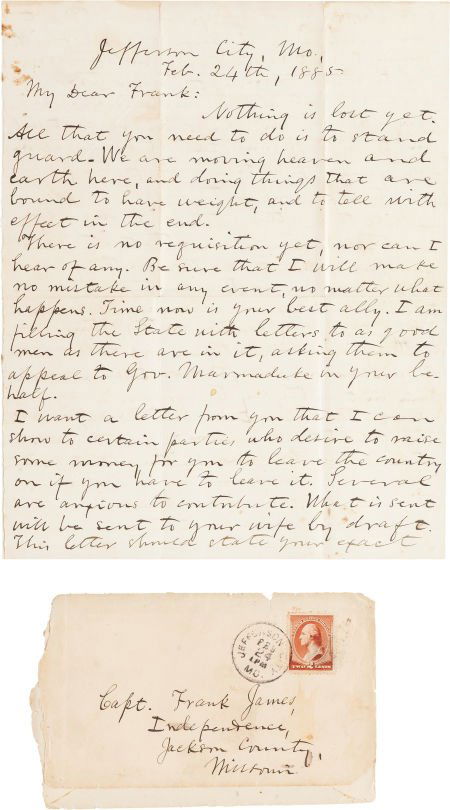 Jefferson City, Mo.,
Feb. 24th, 1885
My Dear Frank:
Nothing is lost yet.
All that you need to do is to stand
guard. We are moving heaven and
earth here, and doing things that are
bound to have weight, and to tell with
effect in the end.
There is no requisition yet, nor can I
hear of any. Be sure that I will make
no mistake in any event, no matter what
happens. Time now is your best ally. I am
filling the State with letters to as good
men as there are in it, asking them to
appeal to Gov. Marmaduke in your be-
half.
I want a letter from you that I can
show to certain parties who desire to raise
some money for you to leave the country
on if you have to leave it. Several
are anxious to contribute. What is sent
will be sent to your wife by draft.
This letter should state your exact
JEFFERSON
FEB
24
1 PM
MO.
Capt. Frank James,
Independence,
Jackson County,
Missouri